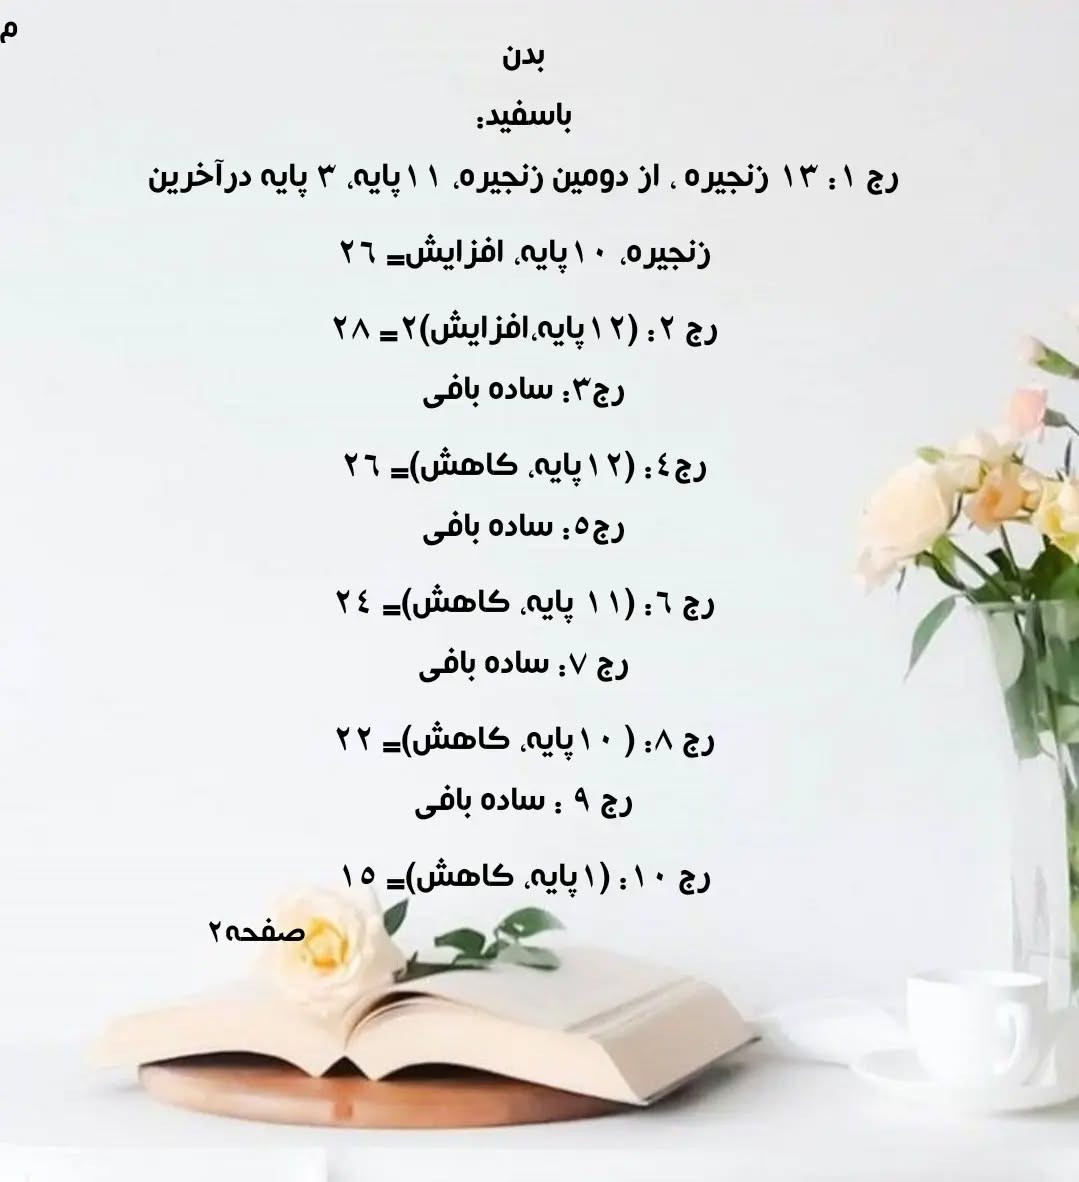 م
بدن
باسفید:
رج ۱: ۱۳ زنجیره ، از دومین زنجیره، ۱۱پایه، ۳ پایه درآخرین
زنجیره، ۱۰پایه، افزایش= ۲٦
رج ۲: (۱۲پایه،افزایش)۲= ۲۸
رج۳: ساده بافی
رج٤: (۱۲پایه، کاهش)= ۲٦
رج٥: ساده بافی
رج ٦: (۱۱ پایه، کاهش)= ۲٤
رج ۷: ساده بافی
رج ۸: ( ۱۰پایه، کاهش)= ۲۲
رج ۹ : ساده بافی
رج ۱۰: (۱پایه، کاهش)= ۱٥
صفحه۲